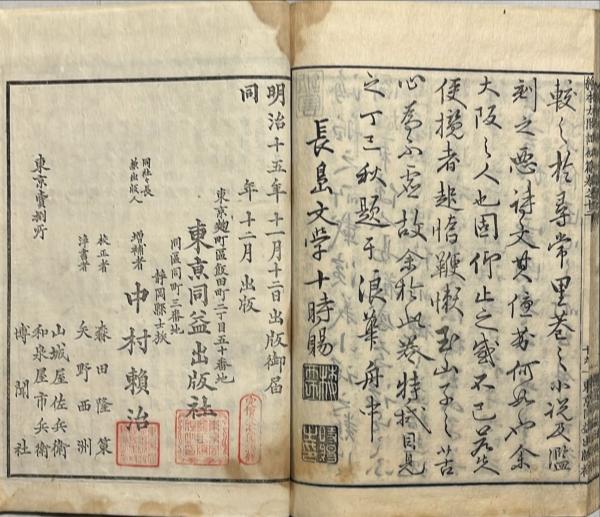 較之於尋常里巷之小説及濫
刻之悪詩文其優劣何如也余
大阪之人也固仰止之感不已是以
使攬者起惰鞭懶玉山子之苦
心為不虚故余於此巻特拭目見
之丁巳秋題于浪華舟中
長島文学十時賜
明治十五年十一月十二日出版御届
同年十二月出版
東京麹町區飯田町二丁目五十番地
東京同益出版社
同區同町三番地
静岡縣士族
同社々長
兼出版人
増補者 中村頼治
校正者 森田隆策
淨書者 矢野西洲
東京賣捌所
山城屋佐兵衛
和泉屋市兵衛
博聞社